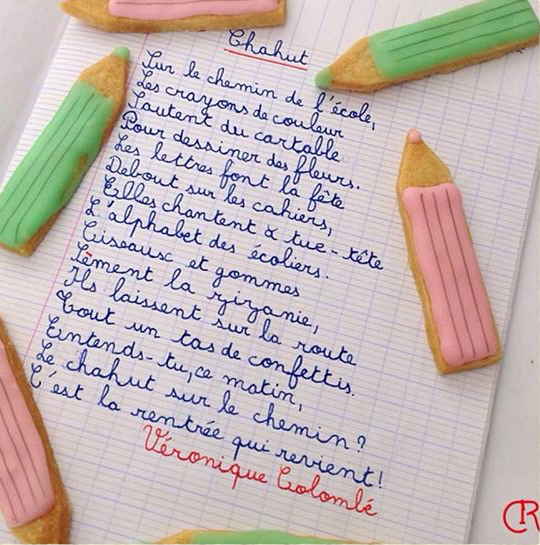 Chahut
Sur le chemin de l'école,
Les crayons de couleur
Sautent du cartable
Pour dessiner des fleurs.
Les lettres font la fête
Debout sur les cahiers,
Elles chantent à tue-tête
L'alphabet des écoliers.
Ciseaux et gommes
Sèment la zizanie,
Ils laissent sur la route
Tout un tas de confettis.
Entends-tu, ce matin,
Le chahut sur le chemin ?
C'est la rentrée qui revient !
Véronique Colombé
CR